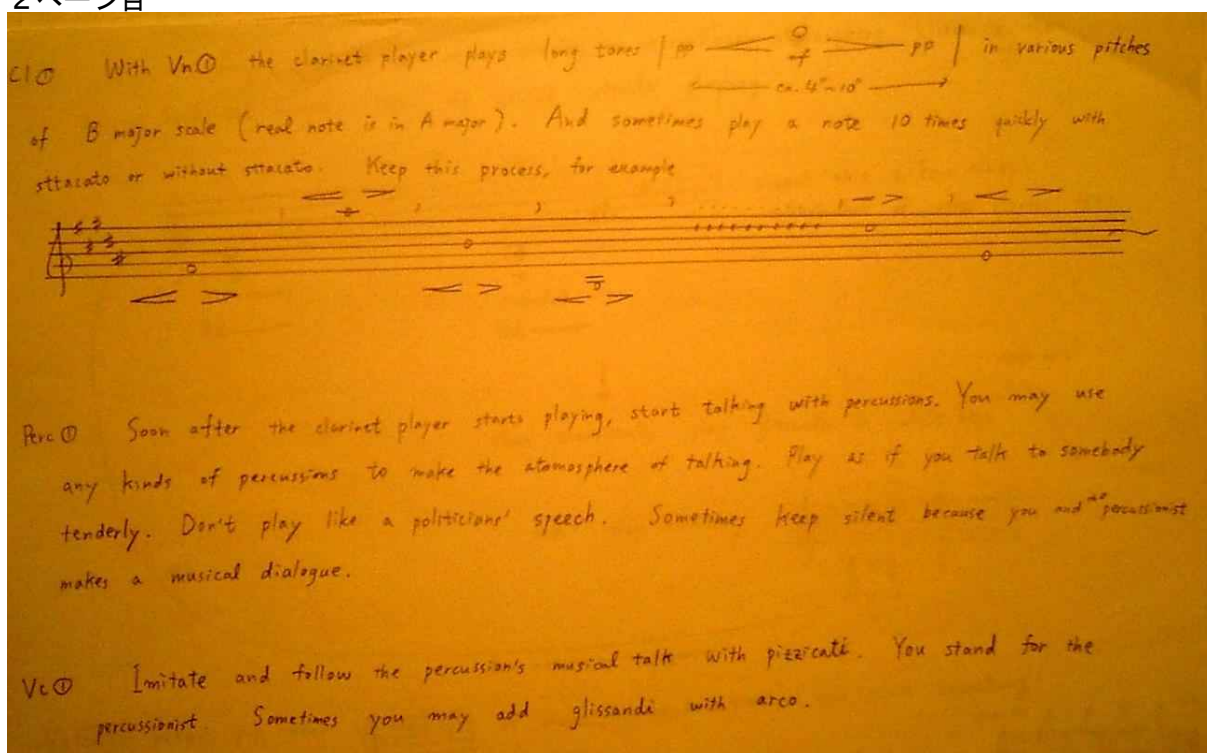 2ページ目
Cl① With Vn① the clarinet player plays long tones | pp f pp | in various pitches
ca. 4"~10"
of B major scale (real note is in A major). And sometimes play a note 10 times quickly with
sttacato or without sttacato. Keep this process, for example
Perc① Soon after the clarinet player starts playing, start talking with percussions. You may use
any kinds of percussions to make the atomosphere of talking. Play as if you talk to somebody
tenderly. Don't play like a politicians' speech. Sometimes keep silent because you and percussionist
makes a musical dialogue.
Vc① Imitate and follow the percussion's musical talk with pizzicati. You stand for the
percussionist. Sometimes you may add glissandi with arco.